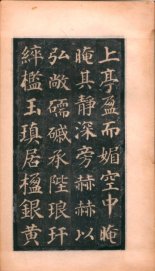 上亭盈而媚空中晻
晻其静深旁赫赫以
弘敞礝磩承陛琅玕
綷檻玉瑱居楹銀黄